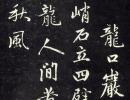 龍口巖
峭石立四壁
龍人間
秋風